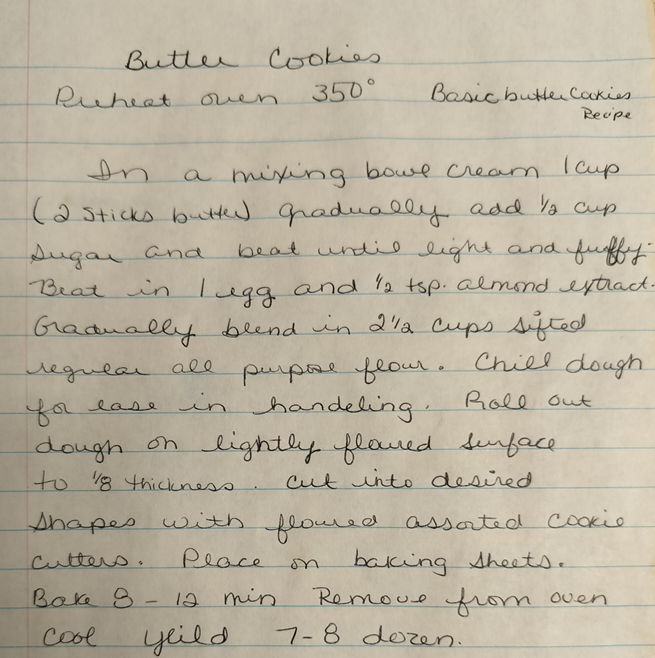 Butter Cookies
Preheat oven 350° Basic butter Cookies
Recipe
In a mixing bowl cream 1 cup
(2 sticks butter) gradually add 1/2 cup
Sugar and beat until light and fuffy.
Beat in 1 egg and 1/2 tsp. almond extract.
Gradually blend in 2 1/2 cups sifted
regular all purpose flour. Chill dough
for ease in handeling. Roll out
dough on lightly floured surface
to 1/8 thickness. Cut into desired
shapes with floured assorted cookie
cutters. Place on baking sheets.
Bake 8 - 12 min Remove from oven
Cool yeild 7-8 dozen.